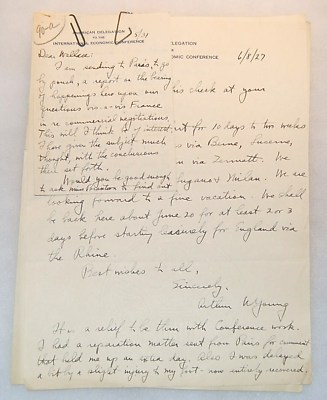 AMERICAN DELEGATION
TO THE
INTERNATIONAL ECONOMIC CONFERENCE
5/31
Dear Wallace:
I am sending to Paris, to go
by pouch, a report on the
of happenings here upon our
questions vis-a-vis France
in re commercial negotiations.
This will I think be of interest.
I have given the subject much
thought, with the conclusions
there set forth.
Would you be good enough
to ask Miss to find out
LEGATION
OMIC CONFERENCE
6/8/27
his check at your
out for 10 days to two weeks
via Berne, Lucerne,
via Zermatt. We
Lugano & Milan. We are
looking forward to a fine vacation. We shall
be back here about June 20 for at least 2 or 3
days before starting leisurely for England via
the Rhine.
Best wishes to all,
Sincerely,
Arthur N Young
It is a relief to be thru with Conference work.
I had a reparation matter sent from Paris for comment
that held me up an extra day. Also I was delayed
a bit by a slight injury to my foot - now entirely recovered.